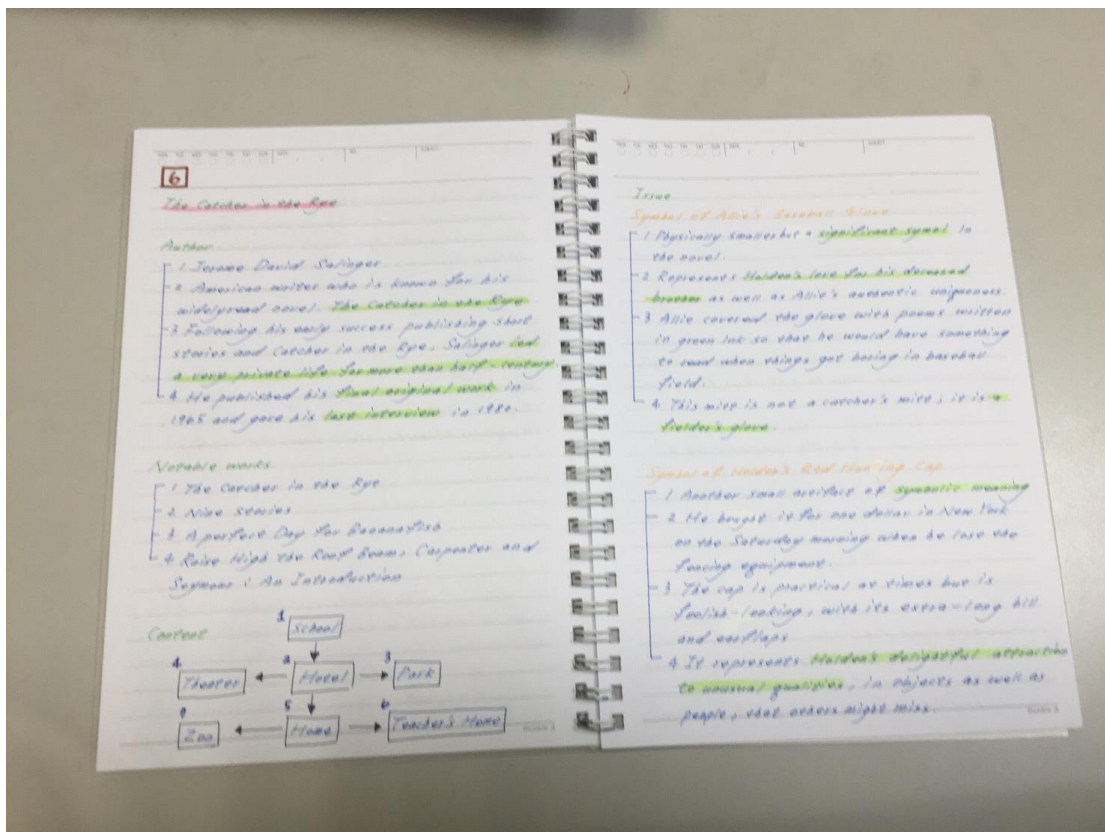 6
The Catcher in the Rye
Author
1 Jerome David Salinger
2 American writer who is known for his
widelyread novel. The Catcher in the Rye
3 Following his early success publishing short
stories and Catcher in the Rye, Salinger led
a very private life for more than half-century
4. He published his final original work in
1965 and gave his last interview in 1980.
Notable works
1 The Catcher in the Rye
2 Nine Stories
3 A perfect Day for Bananafish
4 Raise High the Roof Beam, Carpenter and
Seymour : An Introduction
Content
1
School
4 2 3
Theater Hotel Park
5 6
Zoo Home Teacher's Home
Issue
Symbol of Allie's Baseball Glove
1 Physically smaller but a significant symol in
the novel.
2 Represents Holden's love for his deceased
brother as well as Allie's authentic uniqueness.
3 Allie covered the glove with poems written
in green ink so that he would have something
to read when things got boring in baseball
field.
4. This mitt is not a catcher's mitt; it is a
fielder's glove.
Symbol of Holden's Red Hunting Cap
1 Another small artifact of symbolic meaning
2 He bought it for one dollar in New York
on the Saturday morning when he lose the
fencing equipment.
3 The cap is practical at times but is
foolish-looking, with its extra-long bill
and earflaps
4. It represents Holden's delightful attraction
to unusual qualities, in objects as well as
people, that others might miss.